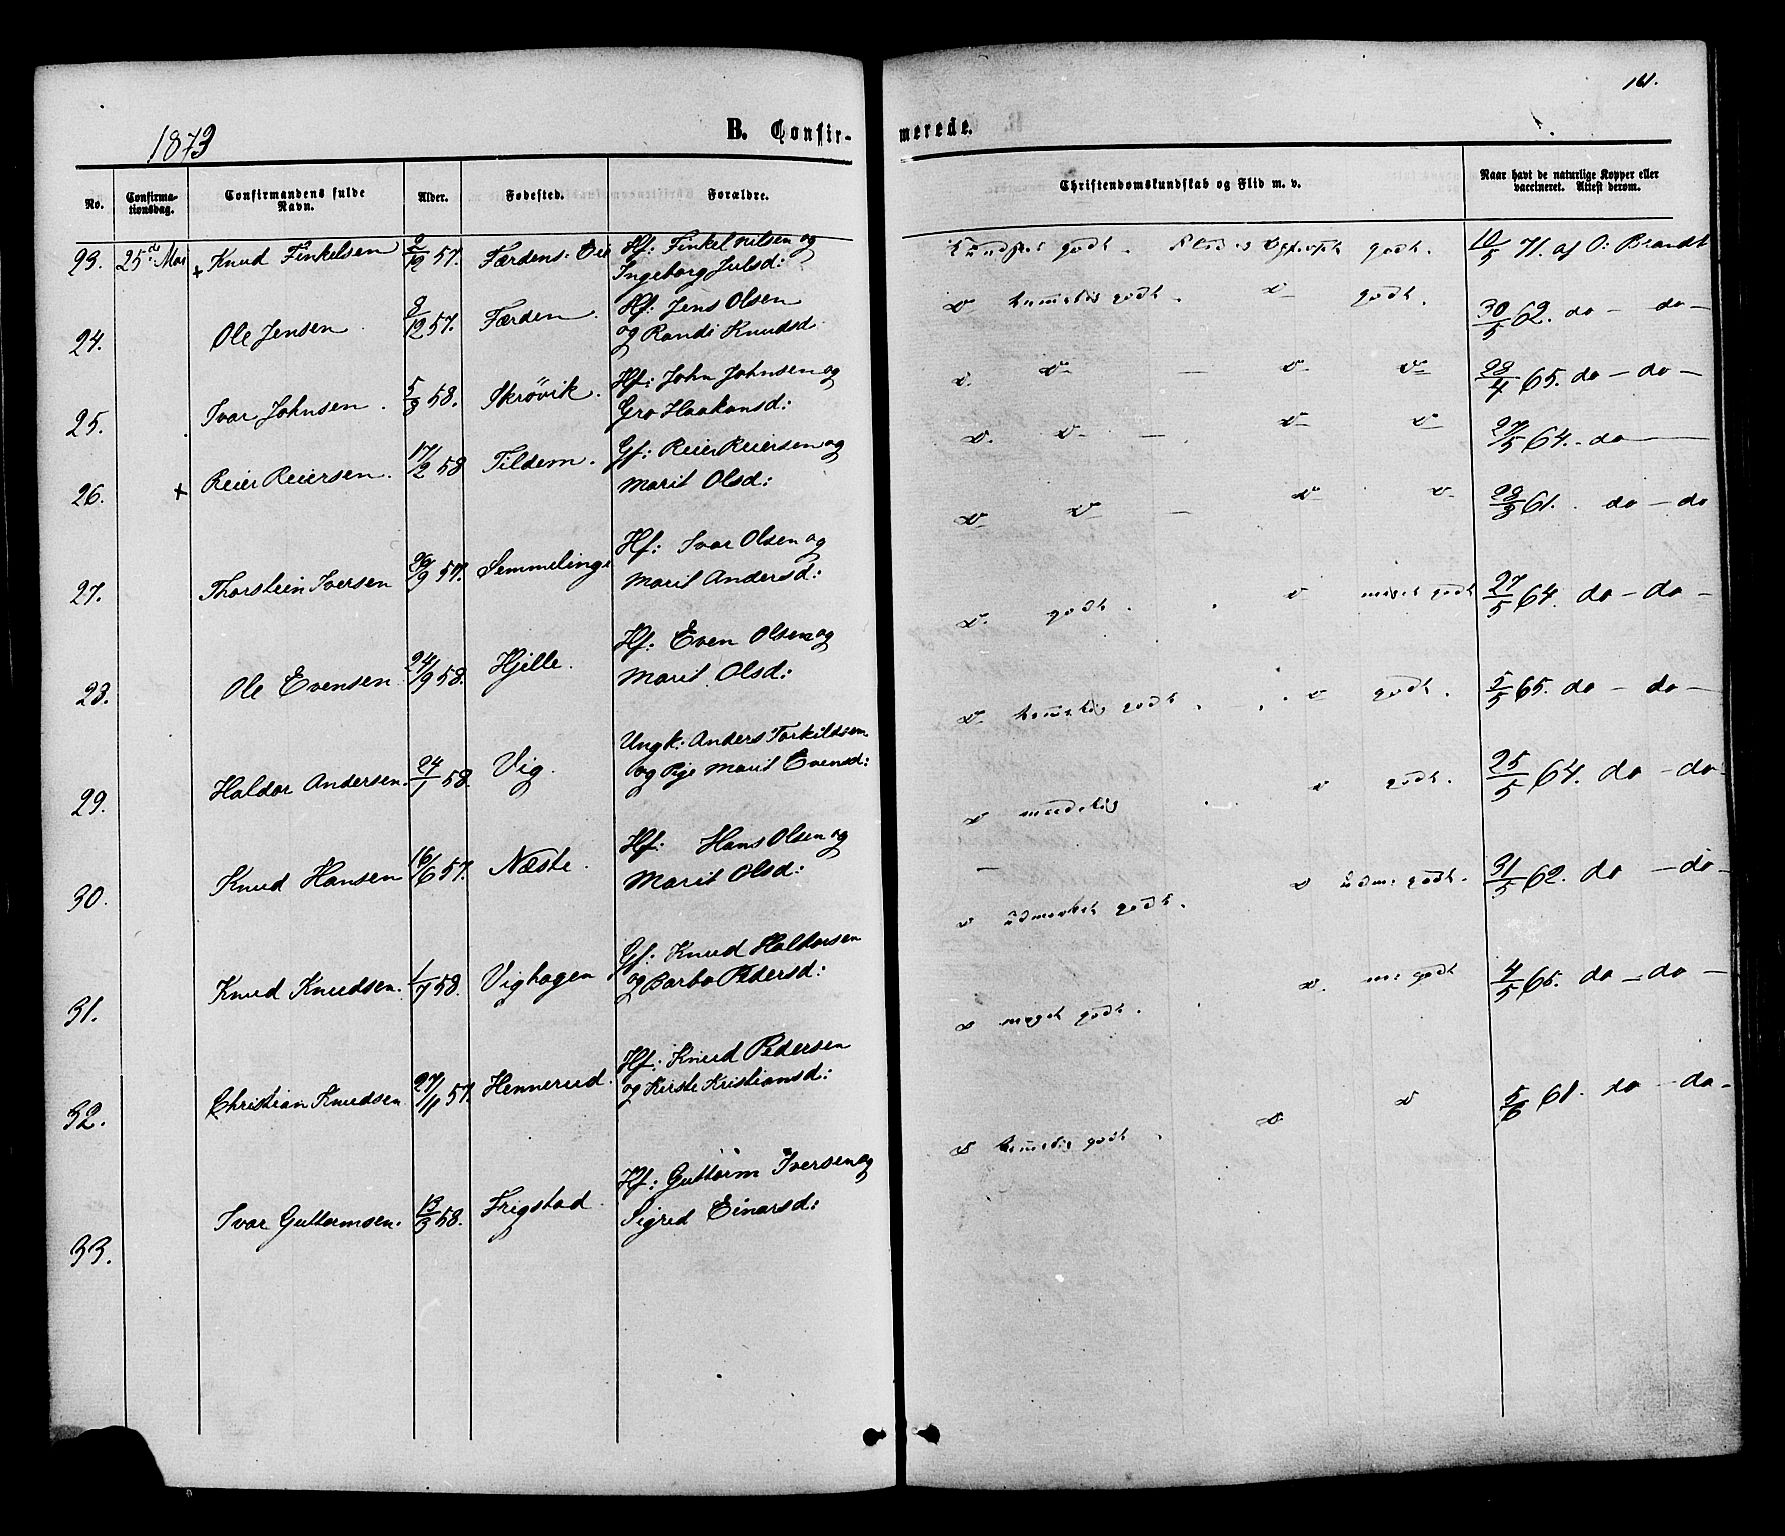 161.
1873
B. Confir-
merede.
No.
Confirma-
tionsdag.
Confirmandens fulde
Navn.
Alder.
Fødested.
Forældre.
Christendomskundskab og Flid m. v.
Naar havt de naturlige Kopper eller
vaccineret. Attest derom.
23. 25de Mai + Knud Finkelsen 2/12 57. Færdens: Eie Hf: Finkel Nilsen og
Ingeborg Julsd: Kundskab godt. Flid og Opførsel godt. 10/5 71. af O: Brandt
24. Ole Jensen 3/12 57. Færden. Hf: Jens Olsen
og Randi Knudsd. v temelig godt. v godt. 30/5 62. do — do —
25. Ivar Johnsen. 5/3 58. Skrøvik. Hf: John Johnsen og
Gro Haakonsd: v. v — v v 28/4 65. do — do —
26. + Reier Reiersen. 17/2 58 Tildem. Gf: Reier Reiersen og
Marit Olsd: v. v — v v 27/5 64. do —
27. Thorstein Iversen 26/9 57. Semmelinge Hf: Ivar Olsen og
Marit Andersd: v v — v v 28/3 61. do — do
28. Ole Evensen 24/9 58. Hjelle. Hf: Even Olsen og
Marit Olsd: v. godt. v meget godt 27/5 64. do — do —
29. Haldor Andersen. 24/1 58. Vig. Ungk: Anders Torkildsen
og Pige Marit Evensd: v temelig godt. v godt. 5/5 65. do — do —
30. Knud Hansen 16/6 57. Næste. Hf: Hans Olsen og
Marit Olsd: v maadelig v godt. 25/5 64. do — do —
31. Knud Knudsen. 1/7 58. Vighagen Gf: Knud Haldorsen
og Barbo Pedersd: v udmerket godt. v udm: godt. 31/5 62. do — do —
32. Christian Knudsen 27/11 57. Hennerud. Hf: Knud Pedersen
og Kirste Kristiansd: v meget godt. v. me godt 4/5 65. do — do —
33. Ivar Guttormsen. 13/3 58. Frigstad. Hf: Guttorm Iversen og
Sigrid Einarsd: v temelig godt. v v 5/6 61. do — do —